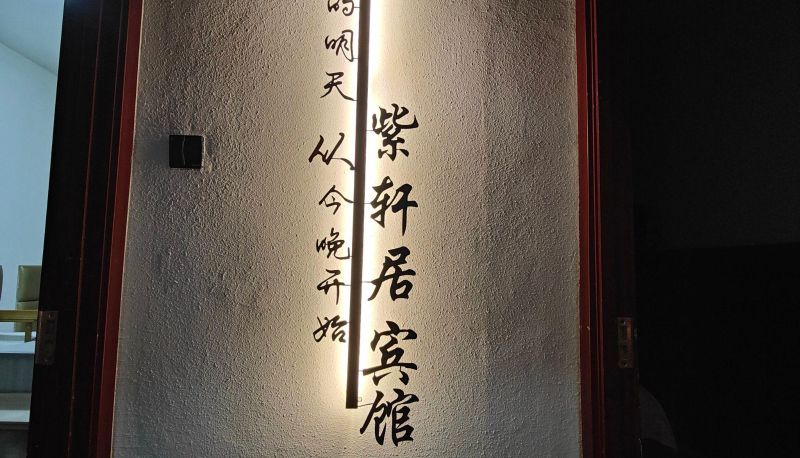 紫轩居宾馆
的明天从今晚开始